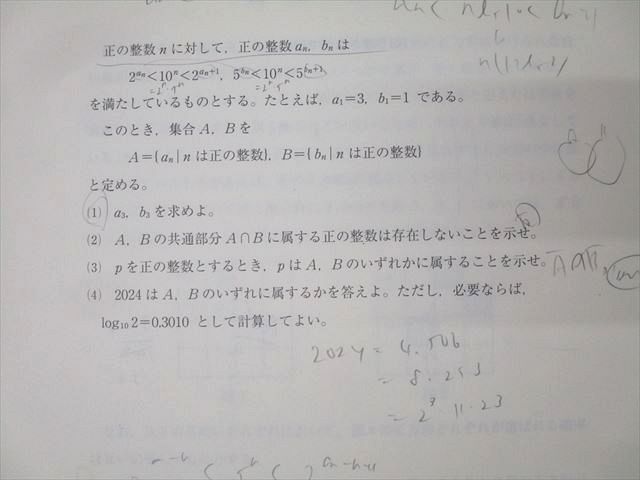 正の整数 n に対して，正の整数 aₙ，bₙ は
2^{aₙ}<10ⁿ<2^{aₙ+1}，5^{bₙ}<10ⁿ<5^{bₙ+1}
=2ⁿ·5ⁿ =2ⁿ·5ⁿ
を満たしているものとする。たとえば，a₁=3，b₁=1 である。
このとき，集合 A，B を
A={aₙ | n は正の整数}，B={bₙ | n は正の整数}
と定める。
(1) a₃，b₃ を求めよ。
(2) A，B の共通部分 A∩B に属する正の整数は存在しないことを示せ。
(3) p を正の整数とするとき，p は A，B のいずれかに属することを示せ。
(4) 2024 は A，B のいずれに属するかを答えよ。ただし，必要ならば，
log₁₀2=0.3010 として計算してよい。
2024 = 4·506
= 8·253
= 2³·11·23